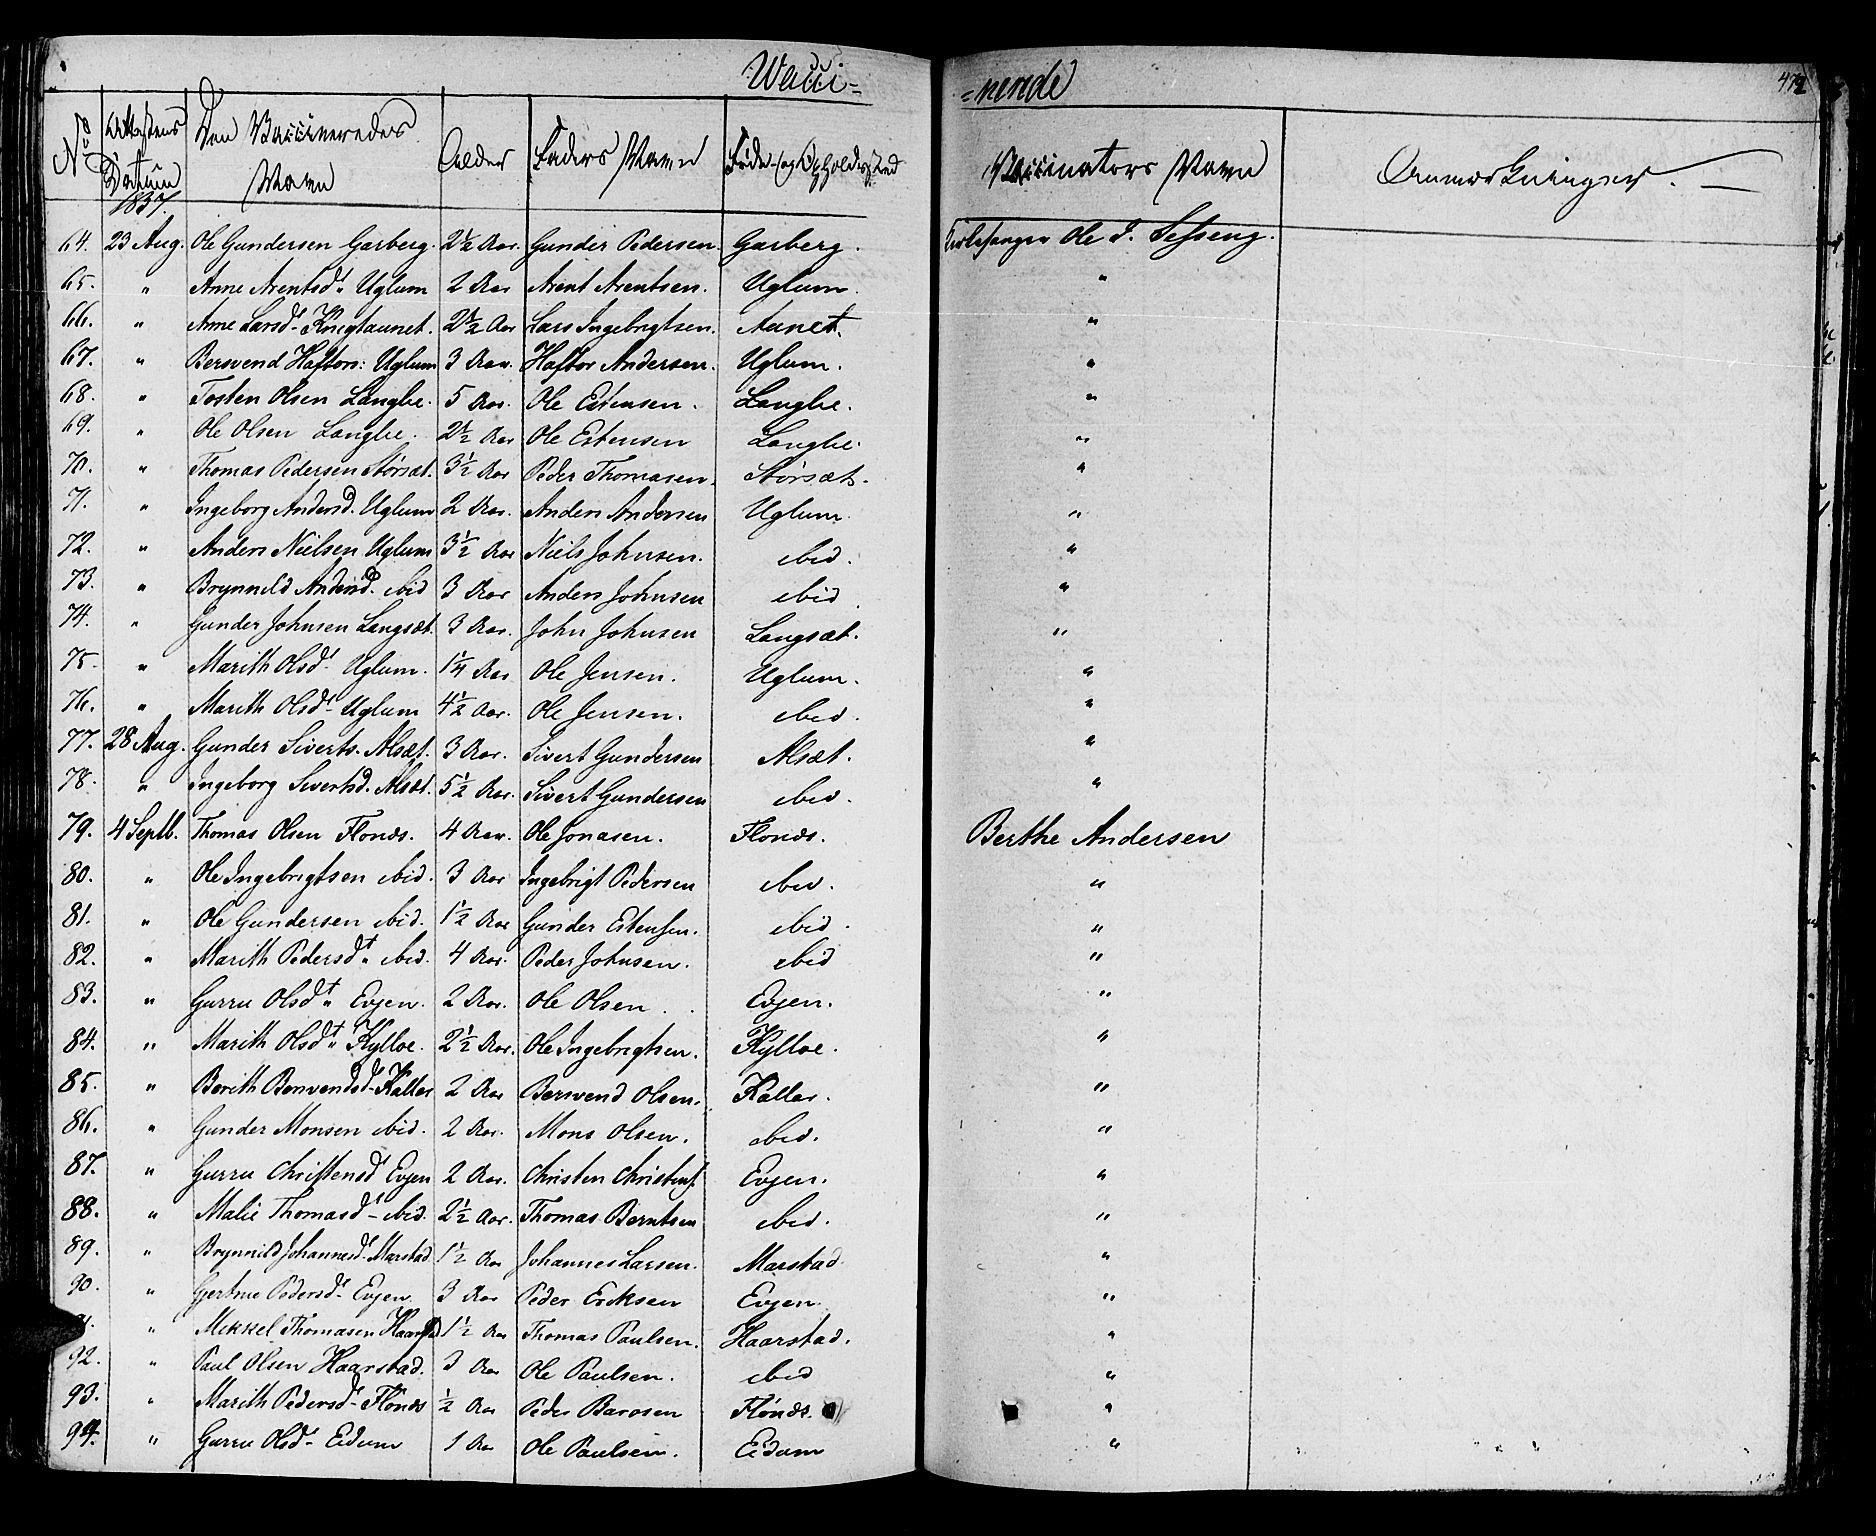 Vacci=
=nerede
472
No
Attestens Datum
Den Vaccineredes Navn
Alder
Faders Navn
Føde- og Opholdssted
Vaccinators Navn
Anmærkninger.
1837.
64. 23 Aug. Ole Gundersen Garberg. 2½ Aar. Gunder Pedersen. Garberg. Kirkesanger Ole J. Sesseng.
65. " Anne Arentsdt. Uglum 2 Aar Arent Arentsen. Uglum. "
66. " Anne Larsdt- Knigtaunet. 2½ Aar Lars Ingebrigtsen. Aunet. "
67. " Bersvend Haftors: Uglum 3 Aar. Haftor Andersen. Uglum. "
68. " Tosten Olsen Langlie. 5 Aar. Ole Estensen. Langlie. "
69. " Ole Olsen Langlie. 2½ Aar Ole Estensen Langlie. "
70. " Thomas Pedersen Størsæt. 3½ Aar Peder Thomasen. Størsæt. "
71. " Ingeborg Andersd. Uglum 2 Aar. Anders Andersen Uglum. "
72. " Anders Nielsen Uglum 3½ Aar Niels Johnsen. ibid. "
73. " Brynnild Andersd. ibid 3 Aar Anders Johnsen ibid. "
74. " Gunder Johnsen Langsæt. 3 Aar. John Johnsen Langsæt. "
75. " Marith Olsdt Uglum. 1¼ Aar Ole Jensen. Uglum. "
76. " Marith Olsdt- Uglum 4½ Aar. Ole Jensen. ibid. "
77. 28 Aug. Gunder Siverts. Alsæt. 3 Aar. Sivert Gundersen Alsæt. "
78. " Ingeborg Sivertsd. Alsæt. 5½ Aar. Sivert Gundersen ibid. "
79. 4 Septb. Thomas Olsen Flonæs. 4 Aar. Ole Jonasen. Flonæs. Berthe Andersen
80. " Ole Ingebrigtsen ibid. 3 Aar Ingebrigt Pedersen ibid. "
81. " Ole Gundersen ibid. 1½ Aar Gunder Estensen. ibid. "
82. " Marith Pedersdt. ibid. 4 Aar. Peder Johnsen. ibid "
83. " Gurru Olsdt. Evjen. 2 Aar. Ole Olsen. Evjen. "
84. " Marith Olsdt. Kylloe. 2½ Aar. Ole Ingebrigtsen. Kylloe. "
85. " Berith Bersvendsd- Kallar 2 Aar Bersvend Olsen. Kallar. "
86. " Gunder Monsen ibid. 2 Aar. Mons Olsen. ibid. "
87. " Gurru Christensdt Evjen 2 Aar. Christen Christens. Evjen. "
88. " Malie Thomasdt- ibid. 2½ Aar. Thomas Berntsen ibid. "
89. " Brynnild Johannesdt. Marstad 1½ Aar Johannes Larsen. Marstad. "
90. " Gertrue Pedersdt- Evjen. 3 Aar Peder Ericksen Evjen. "
" Mikkel Thomasen Haarstad 1½ Aar Thomas Paulsen. Haarstad. "
92. " Paul Olsen Haarstad. 3 Aar Ole Paulsen. ibid "
93. " Marith Pedersdt- Flonæs ½ Aar Peder Barosen Flonæs. "
94. " Gurru Olsdt- Eidum 1 Aar Ole Paulsen. Eidum "